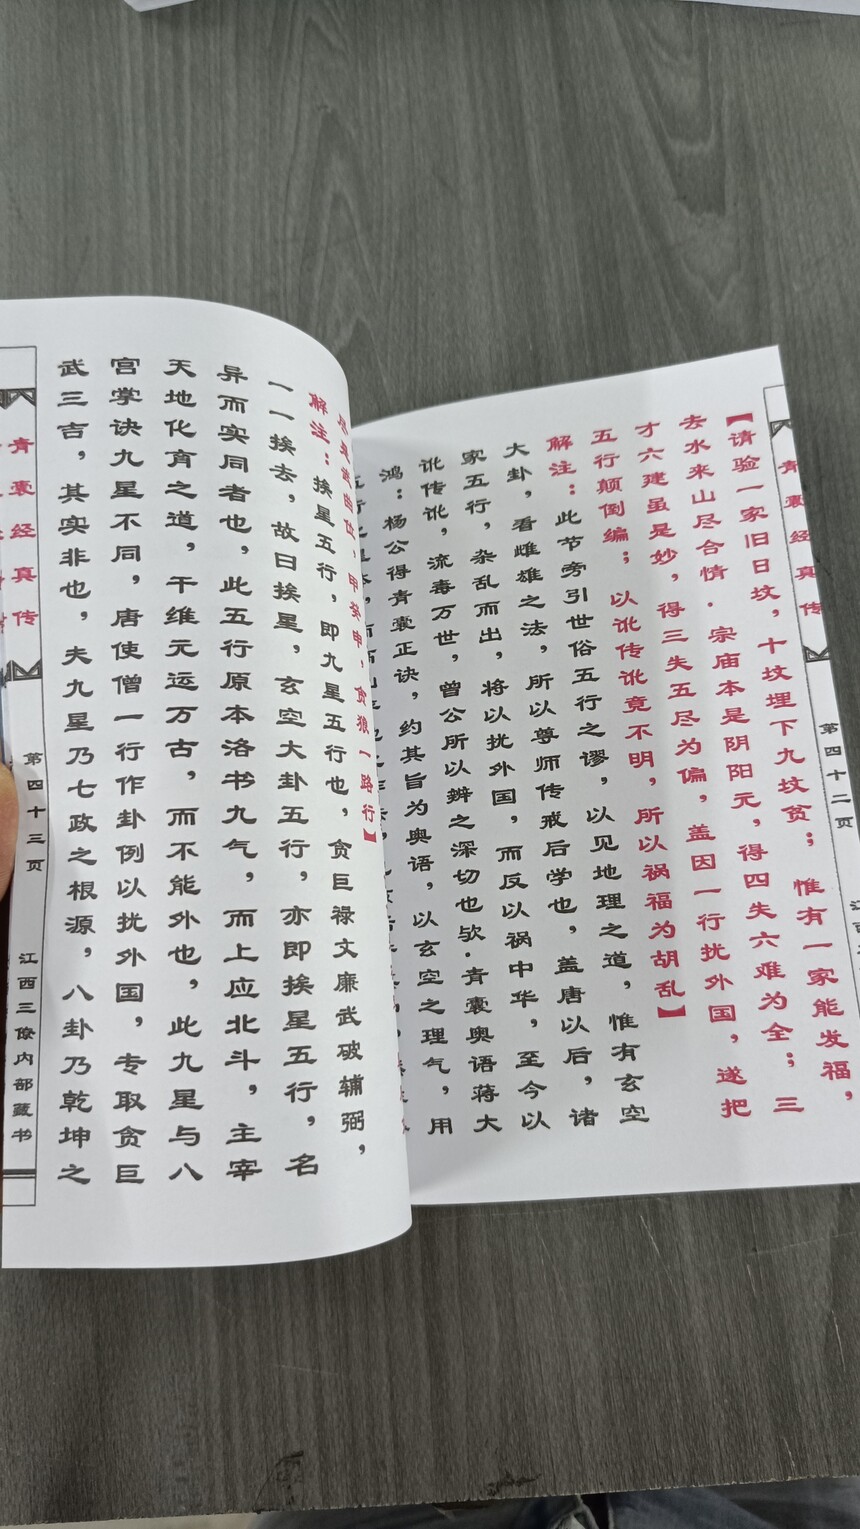 【请验一家旧日坟，十坟埋下九坟贫；惟有一家能发福，
去水来山尽合情．宗庙本是阴阳元，得四失六难为全；三
才六建虽是妙，得三失五尽为偏，盖因一行扰外国，遂把
五行颠倒编；以讹传讹竟不明，所以祸福为胡乱】
解注：此节旁引世俗五行之谬，以见地理之道，惟有玄空
大卦，看雌雄之法，所以尊师传戒后学也，盖唐以后，诸
家五行，杂乱而出，将以扰外国，而反以祸中华，至今以
讹传讹，流毒万世，曾公所以辨之深切也欤．青囊奥语蒋大
鸿：杨公得青囊正诀，约其旨为奥语，以玄空之理气，用
青囊经真传
第四十二页
江西
位，甲癸申，贪狼一路行】
解注：挨星五行，即九星五行也，贪巨禄文廉武破辅弼，
一一挨去，故曰挨星，玄空大卦五行，亦即挨星五行，名
异而实同者也，此五行原本洛书九气，而上应北斗，主宰
天地化育之道，干维元运万古，而不能外也，此九星与八
宫掌诀九星不同，唐使僧一行作卦例以扰外国，专取贪巨
武三吉，其实非也，夫九星乃七政之根源，八卦乃乾坤之
青囊经真传
第四十三页
江西三僚内部藏书